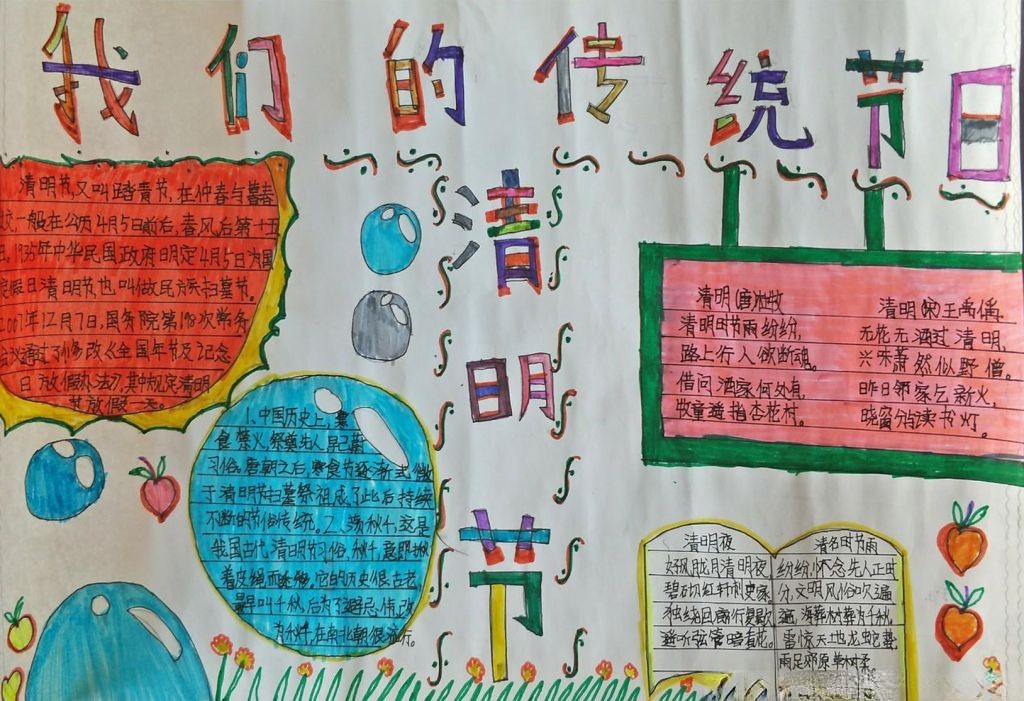 我们的传统节日
清明节
清明节,又叫踏青节,在仲春与暮春
一般在公历4月5日前后,春风后第十五
1935年中华民国政府明定4月5日为国
假日清明节,也叫做民族扫墓节。
2007年12月7日,国务院第198次常务
会议通过了修改《全国年节及纪念
日放假办法》,其中规定清明
节放假一天。
1、中国历史上,寒
食禁火,祭奠先人,早已蔚
习俗。唐朝之后,寒食节逐渐式微
于清明节扫墓祭祖成了此后持续
不断的节俗传统。2、荡秋千,这是
我国古代清明节习俗,秋千,意即揪
着皮绳而迁移,它的历史很古老,
最早叫千秋,后为了避忌,
为秋千,在南北朝很流行。
清明(唐)杜牧
清明时节雨纷纷,
路上行人欲断魂。
借问酒家何处有,
牧童遥指杏花村。
清明(宋)王禹偁
无花无酒过清明,
兴味萧然似野僧。
昨日邻家乞新火,
晓窗分与读书灯。
清明夜
好风胧月清明夜
碧砌红轩刺史家
独绕回廊行复歇
遥听弦管暗看花。
清名时节雨
纷纷,怀念先人正时
分,文明风俗吹遍
海葬树葬为千秋,
雷惊天地龙蛇蛰
雨足郊原草树柔。